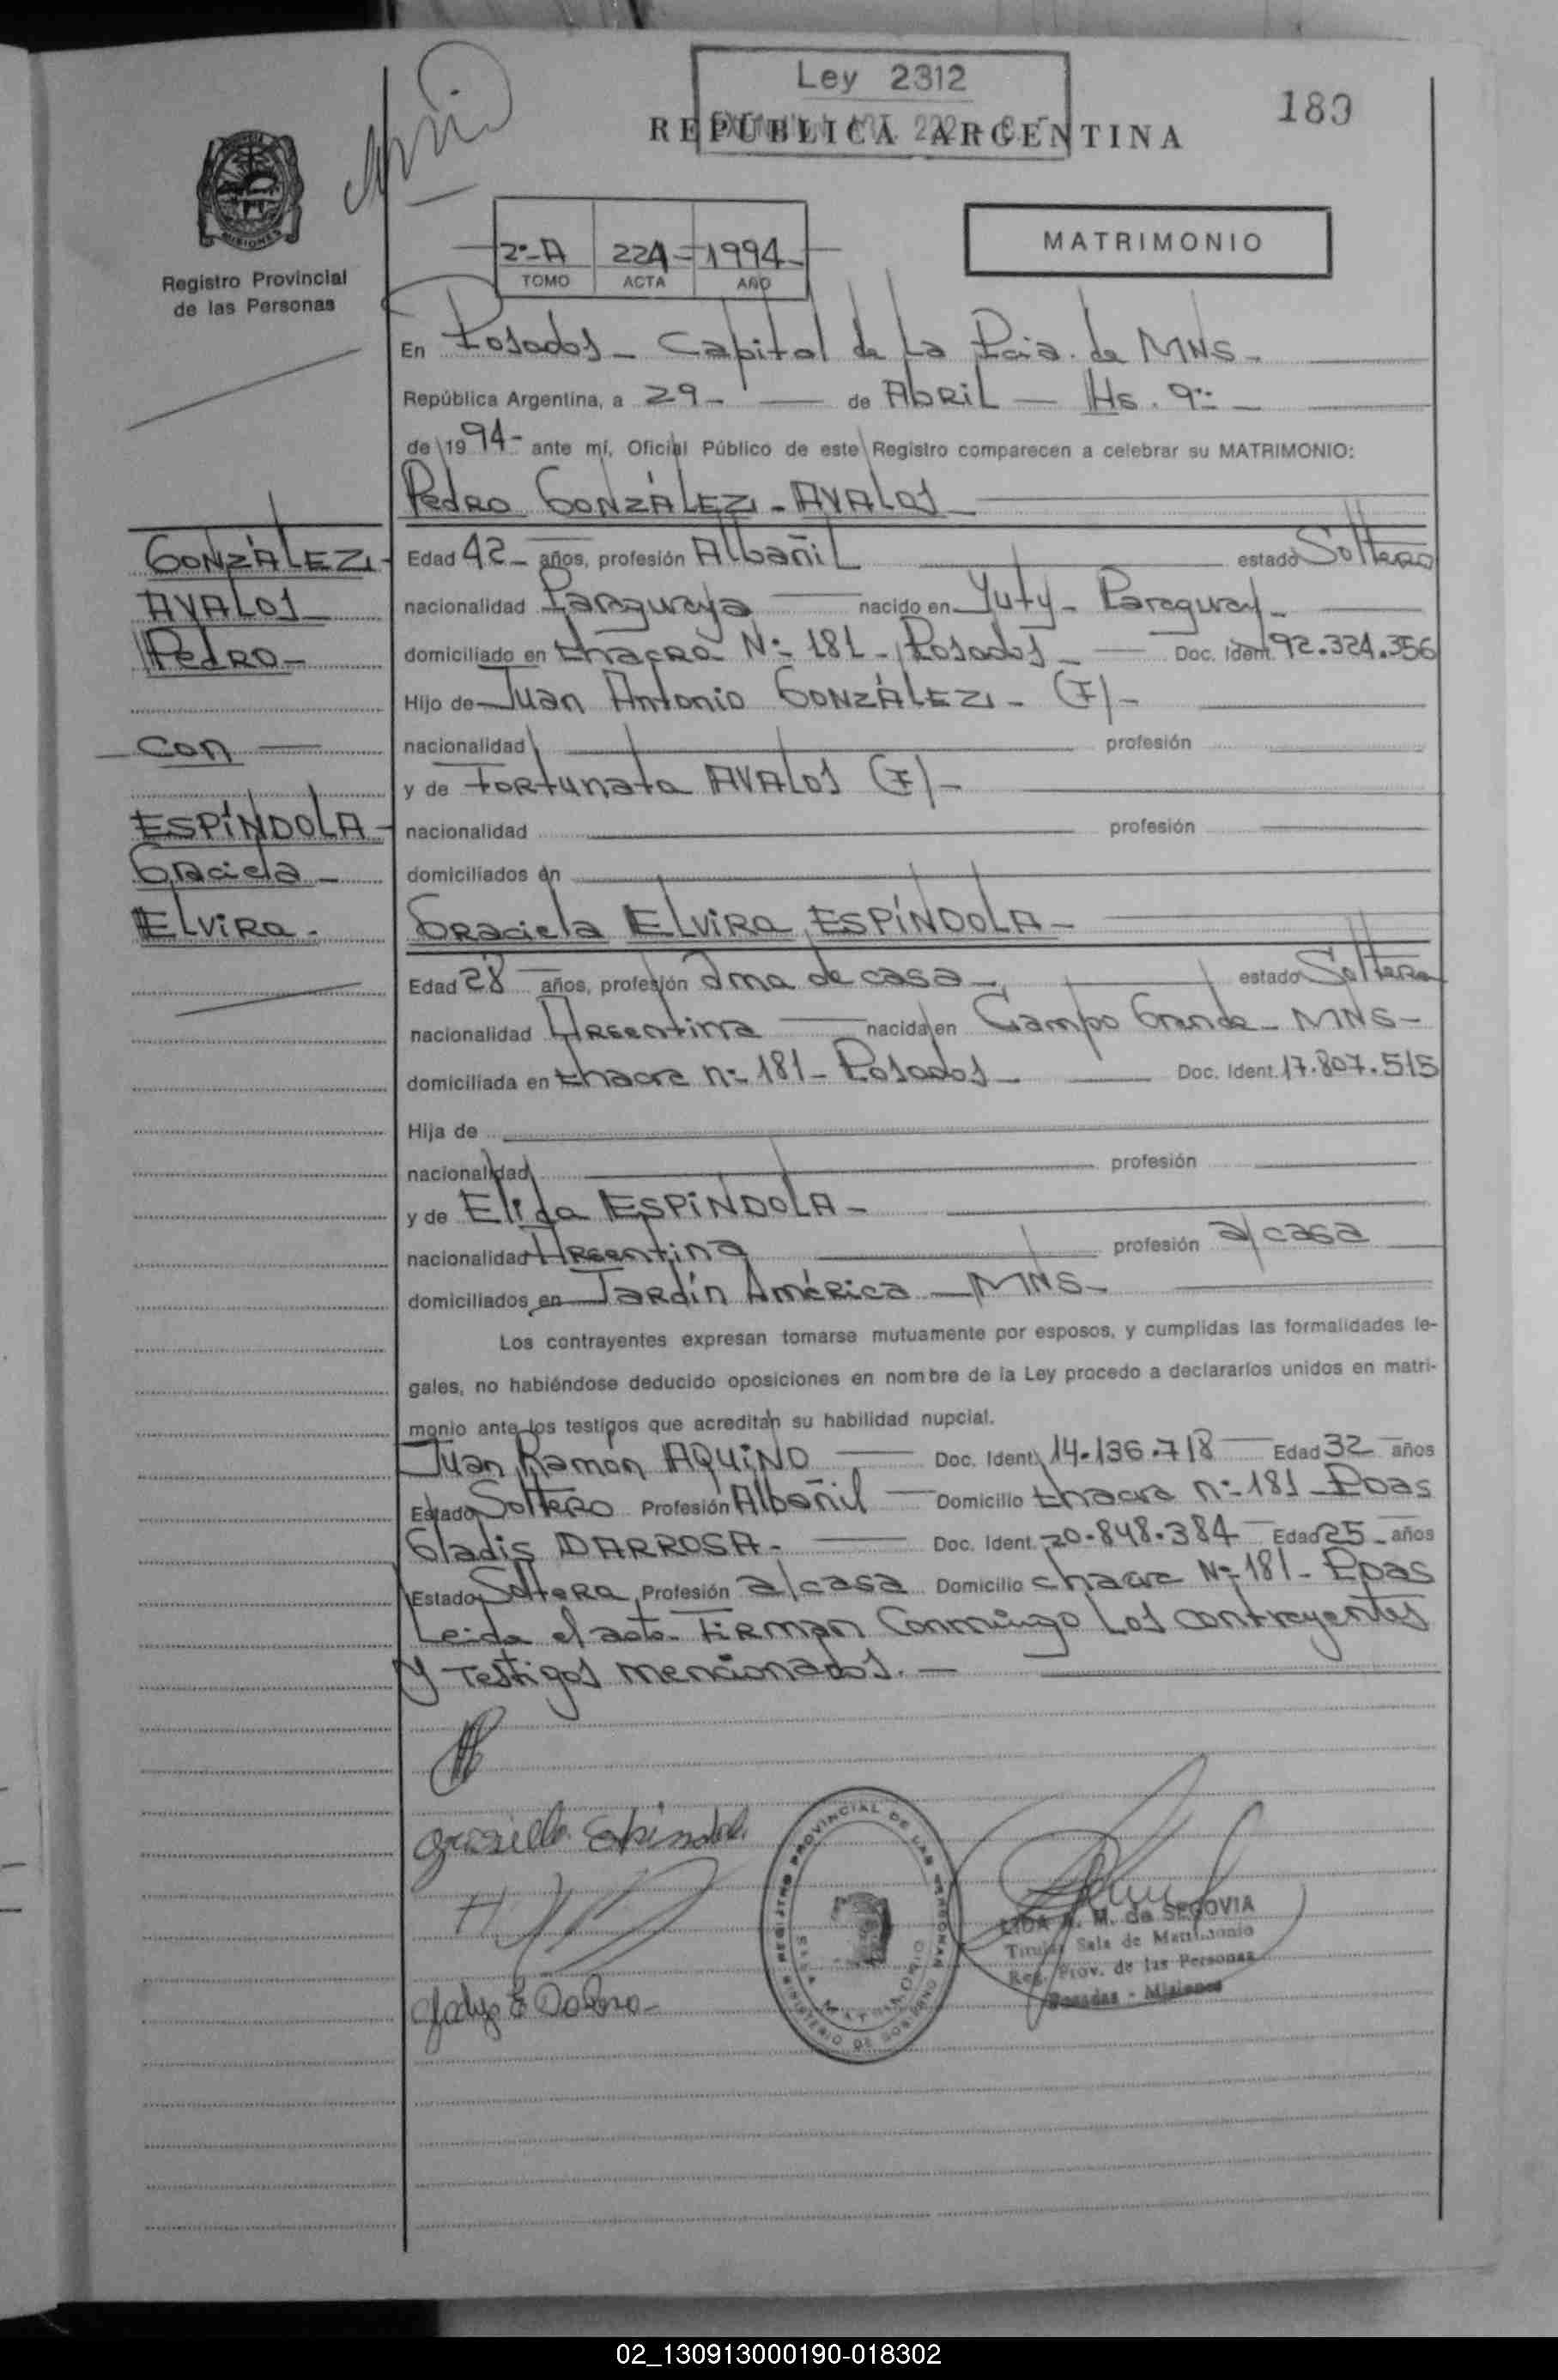 Ley 2312
180
REPUBLICA ARGENTINA
MISIONES
Registro Provincial
de las Personas
2º-A 221- 1994-
TOMO ACTA AÑO
MATRIMONIO
En Posadas - Capital de La Pcia. de MNS-
República Argentina, a 29- de ABRIL - Hs. 9-
de 1994- ante mí, Oficial Público de este Registro comparecen a celebrar su MATRIMONIO:
Pedro GONZÁLEZ - AVALOS
GONZÁLEZ-
AVALOS
Pedro-
Con
ESPÍNDOLA-
Graciela-
Elvira-
Edad 42- años, profesión Albañil estado Soltero
nacionalidad Paraguaya nacido en Yuty- Paraguay-
domiciliado en chacra Nº 181- Posadas- Doc. Ident. 92.324.356
Hijo de Juan Antonio GONZÁLEZ- (F)-
nacionalidad profesión
y de Fortunata AVALOS (F)-
nacionalidad profesión
domiciliados en
Graciela Elvira ESPÍNDOLA-
Edad 28 años, profesión Ama de casa- estado Soltera
nacionalidad Argentina nacida en Campo Grande- MNS-
domiciliada en chacra nº 181- Posadas- Doc. Ident. 17.807.515
Hija de
nacionalidad profesión
y de Elida ESPÍNDOLA-
nacionalidad Argentina profesión a/casa
domiciliados en Jardín América - MNS-
Los contrayentes expresan tomarse mutuamente por esposos, y cumplidas las formalidades le-
gales, no habiéndose deducido oposiciones en nombre de la Ley procedo a declararlos unidos en matri-
monio ante los testigos que acreditan su habilidad nupcial.
Juan Ramon AQUINO Doc. Ident. 14.136.718 Edad 32 años
Estado Soltero Profesión Albañil Domicilio chacra nº 181- Pdas
Gladis DARROSA- Doc. Ident. 20.848.384 Edad 25- años
Estado Soltera Profesión a/casa Domicilio chacra Nº 181- Pdas
Leida el acta- Firman Conmigo Los contrayentes
y Testigos mencionados.-
REGISTRO PROVINCIAL DE LAS PERSONAS
MINISTERIO DE GOBIERNO
SALA MATRIMONIO
LIDA M. de SEGOVIA
Titular Sala de Matrimonio
Reg. Prov. de las Personas
Posadas - Misiones
02_130913000190-018302